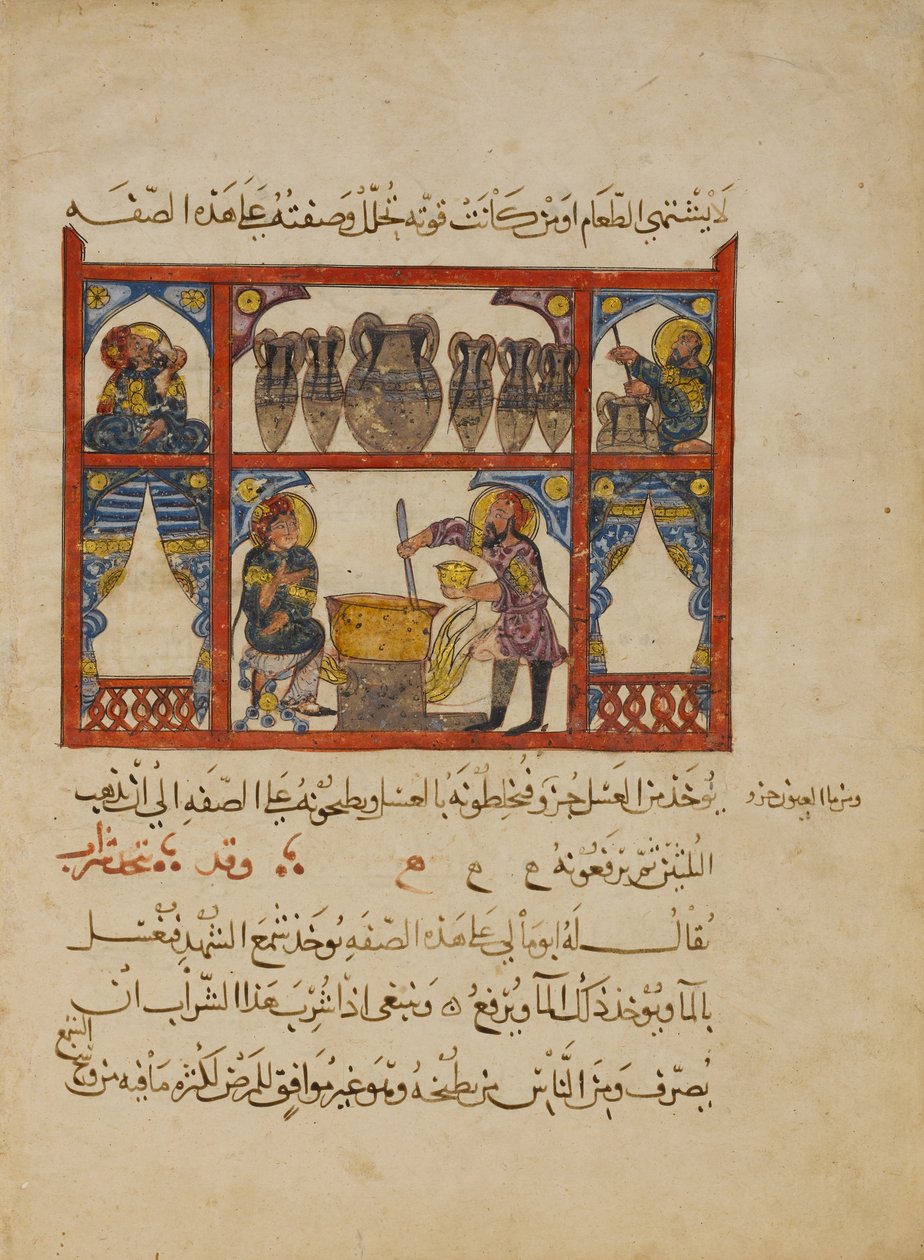 لَا يَشْتَهِي الطَّعَام اوَمَنْ كَانَتْ قوّته تُحَلَّلُ وَصَنعتُهُ عَلَى هَذه الصّفَه
يُوخَذ من العَسَل جُزؤ فيُخلِطونَهُ بالعسَل ويطبخُونهُ علَى الصّفَهِ الي انْ يَذهب
ومن ما العيون جزو
الثلثَيْن ثمّ يَرفَعُونهُ ۿ ۿ ۿ وقد يتخذ شراب
يُقالُ لَهُ ابومَالي عَلى هَذه الصّفَهِ يُوخَذ شمَع الشّهدِ فيُغسَل
بالمآ ويُوخذ ذلك المآ ويُرفعُ وَينبغي اذا شُرِبَ هَذا الشّرَاب انْ
يُصرّف وَمِنَ النَّاسِ من يطبُخهُ وهو غير مُوَافِق للمرَضى لكثره مَا فيه من وسخ
الشمع